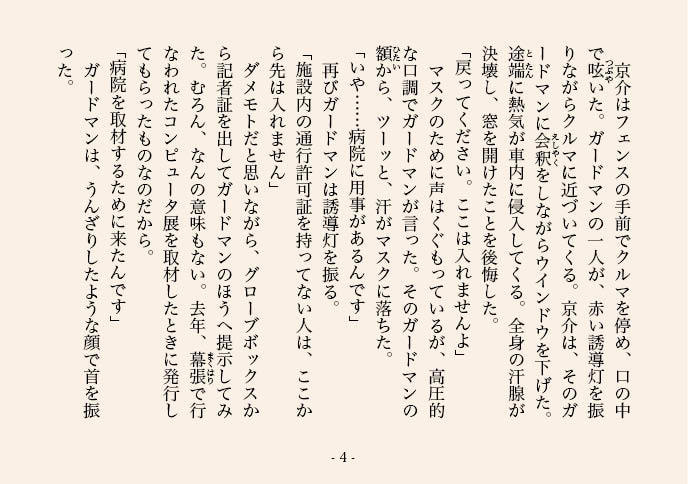 京介はフェンスの手前でクルマを停め、口の中
で呟いた。ガードマンの一人が、赤い誘導灯を振
りながらクルマに近づいてくる。京介は、そのガ
ードマンに会釈をしながらウインドウを下げた。
途端に熱気が車内に侵入してくる。全身の汗腺が
決壊し、窓を開けたことを後悔した。
「戻ってください。ここは入れませんよ」
マスクのために声はくぐもっているが、高圧的
な口調でガードマンが言った。そのガードマンの
額から、ツーッと、汗がマスクに落ちた。
「いや……病院に用事があるんです」
再びガードマンは誘導灯を振る。
「施設内の通行許可証を持ってない人は、ここか
ら先は入れません」
ダメモトだと思いながら、グローブボックスか
ら記者証を出してガードマンのほうへ提示してみ
た。むろん、なんの意味もない。去年、幕張で行
なわれたコンピュータ展を取材したときに発行し
てもらったものなのだから。
「病院を取材するために来たんです」
ガードマンは、うんざりしたような顔で首を振
った。
- 4 -